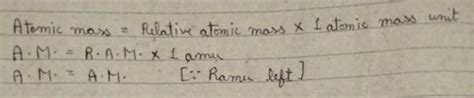 Atomic mass = Relative atomic mass × 1 atomic mass unit
A.M. = R.A.M. × 1 amu
A.M. = A.M. [∵ Ramu left]